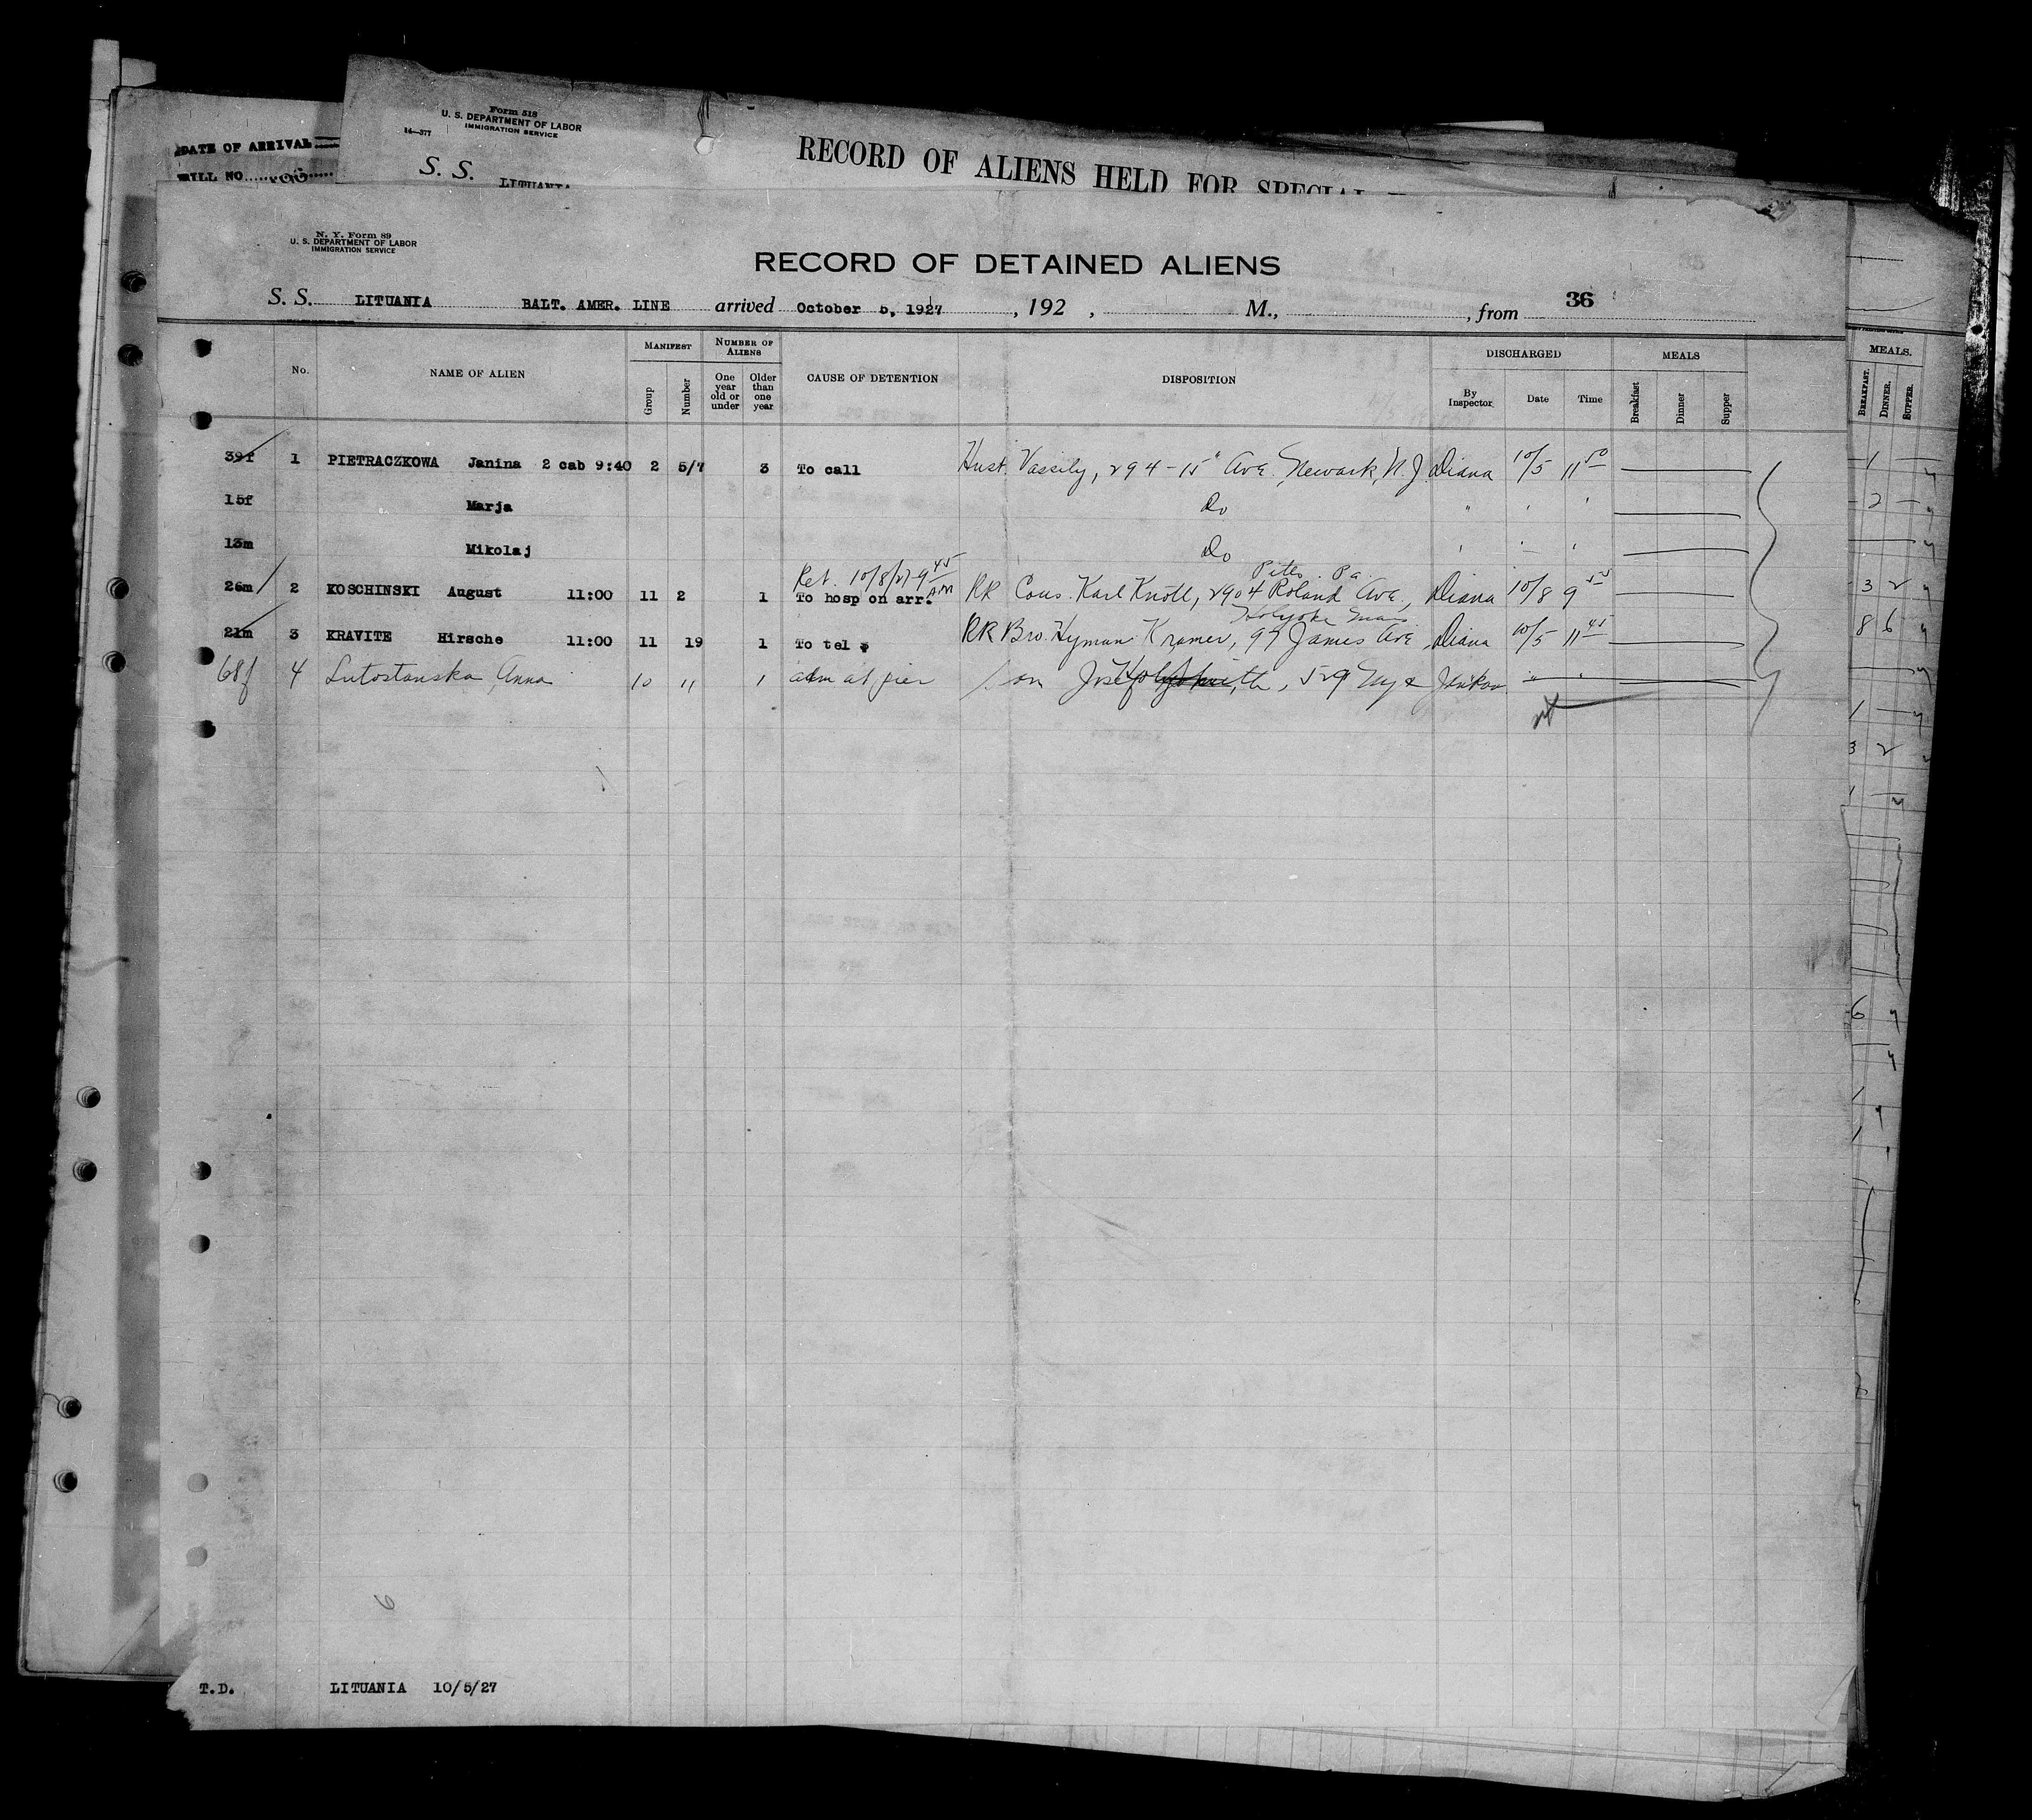 DATE OF ARRIVAL
BILL NO.
Form 518
U. S. DEPARTMENT OF LABOR
IMMIGRATION SERVICE
14—377
S. S. LITUANIA
RECORD OF ALIENS HELD FOR SPECIAL
N. Y. Form 89
U. S. DEPARTMENT OF LABOR
IMMIGRATION SERVICE
RECORD OF DETAINED ALIENS
S. S. LITUANIA BALT. AMER. LINE arrived October 5, 1927, 192 , M., , from 36
No. NAME OF ALIEN MANIFEST Group Number NUMBER OF ALIENS One year old or under Older than one year CAUSE OF DETENTION DISPOSITION DISCHARGED By Inspector Date Time MEALS Breakfast Dinner Supper
39f 1 PIETRACZKOWA Janina 2 cab 9:40 2 5/7 3 To call Husb. Vassily, 294 - 15" Ave. Newark, N. J. Diana 10/5 11 50
15f Marja Do " " "
13m Mikolaj Do " " "
Ret. 10/8/27 9 45 AM Pitts. Pa.
26m 2 KOSCHINSKI August 11:00 11 2 1 To hosp on arr. RR Cous. Karl Knoll, 2904 Roland Ave., Diana 10/8 9 55
Holyoke Mass.
21m 3 KRAVITE Hirsche 11:00 11 19 1 To tel $ RR Bro. Hyman Kramer, 97 James Ave Diana 10/5 11 45
68f 4 Lutostanska, Anna 10 11 1 adm at pier son Joseph 529 " "
MEALS.
BREAKFAST. DINNER. SUPPER.
T.D. LITUANIA 10/5/27